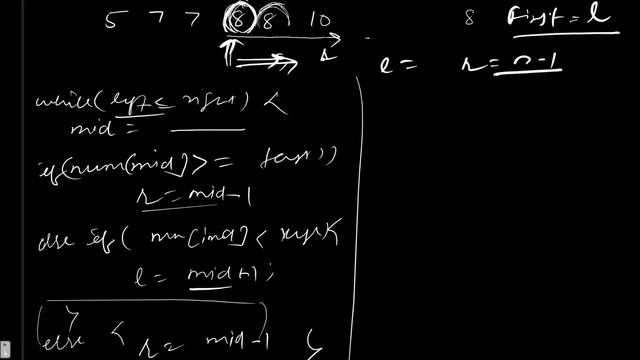 5 7 7 8 8 10 8 first = l
r
l = r = n-1
while(left <= right) {
mid =
if(num[mid] >= target)
r = mid-1
else if( num[mid] <
l = mid+1;
}
else { r = mid-1 }